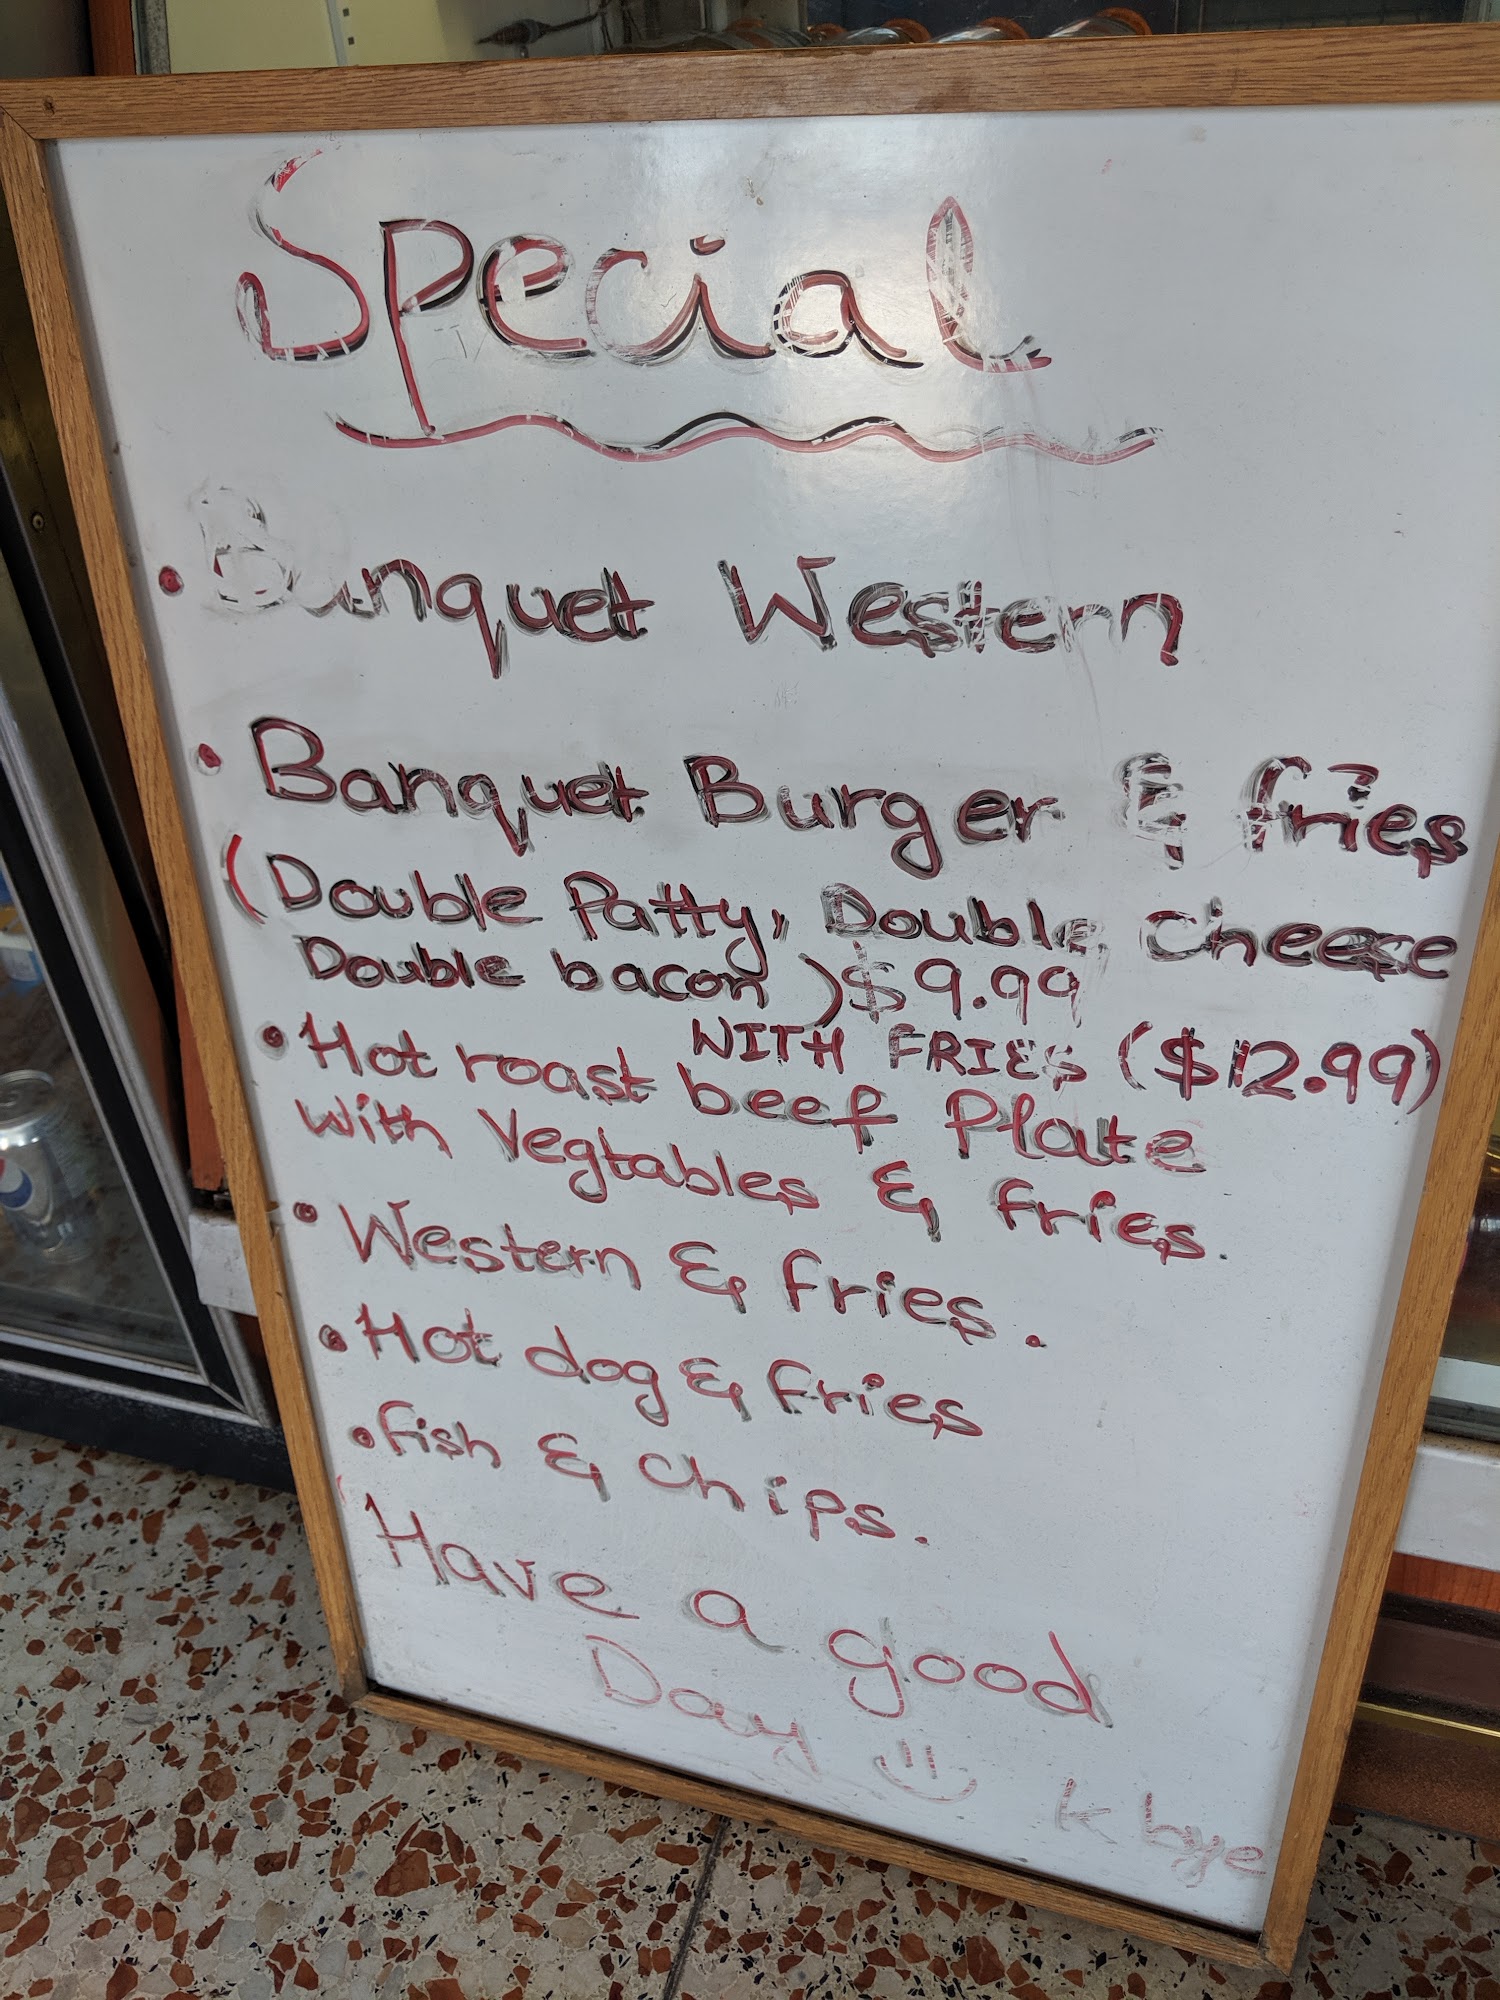 Special
• Banquet Western
• Banquet Burger & fries
(Double Patty, Double Cheese
Double bacon) $9.99
WITH FRIES ($12.99)
• Hot roast beef Plate
with Vegtables & fries.
• Western & fries.
• Hot dog & fries
• fish & chips.
Have a good
Day
k bye